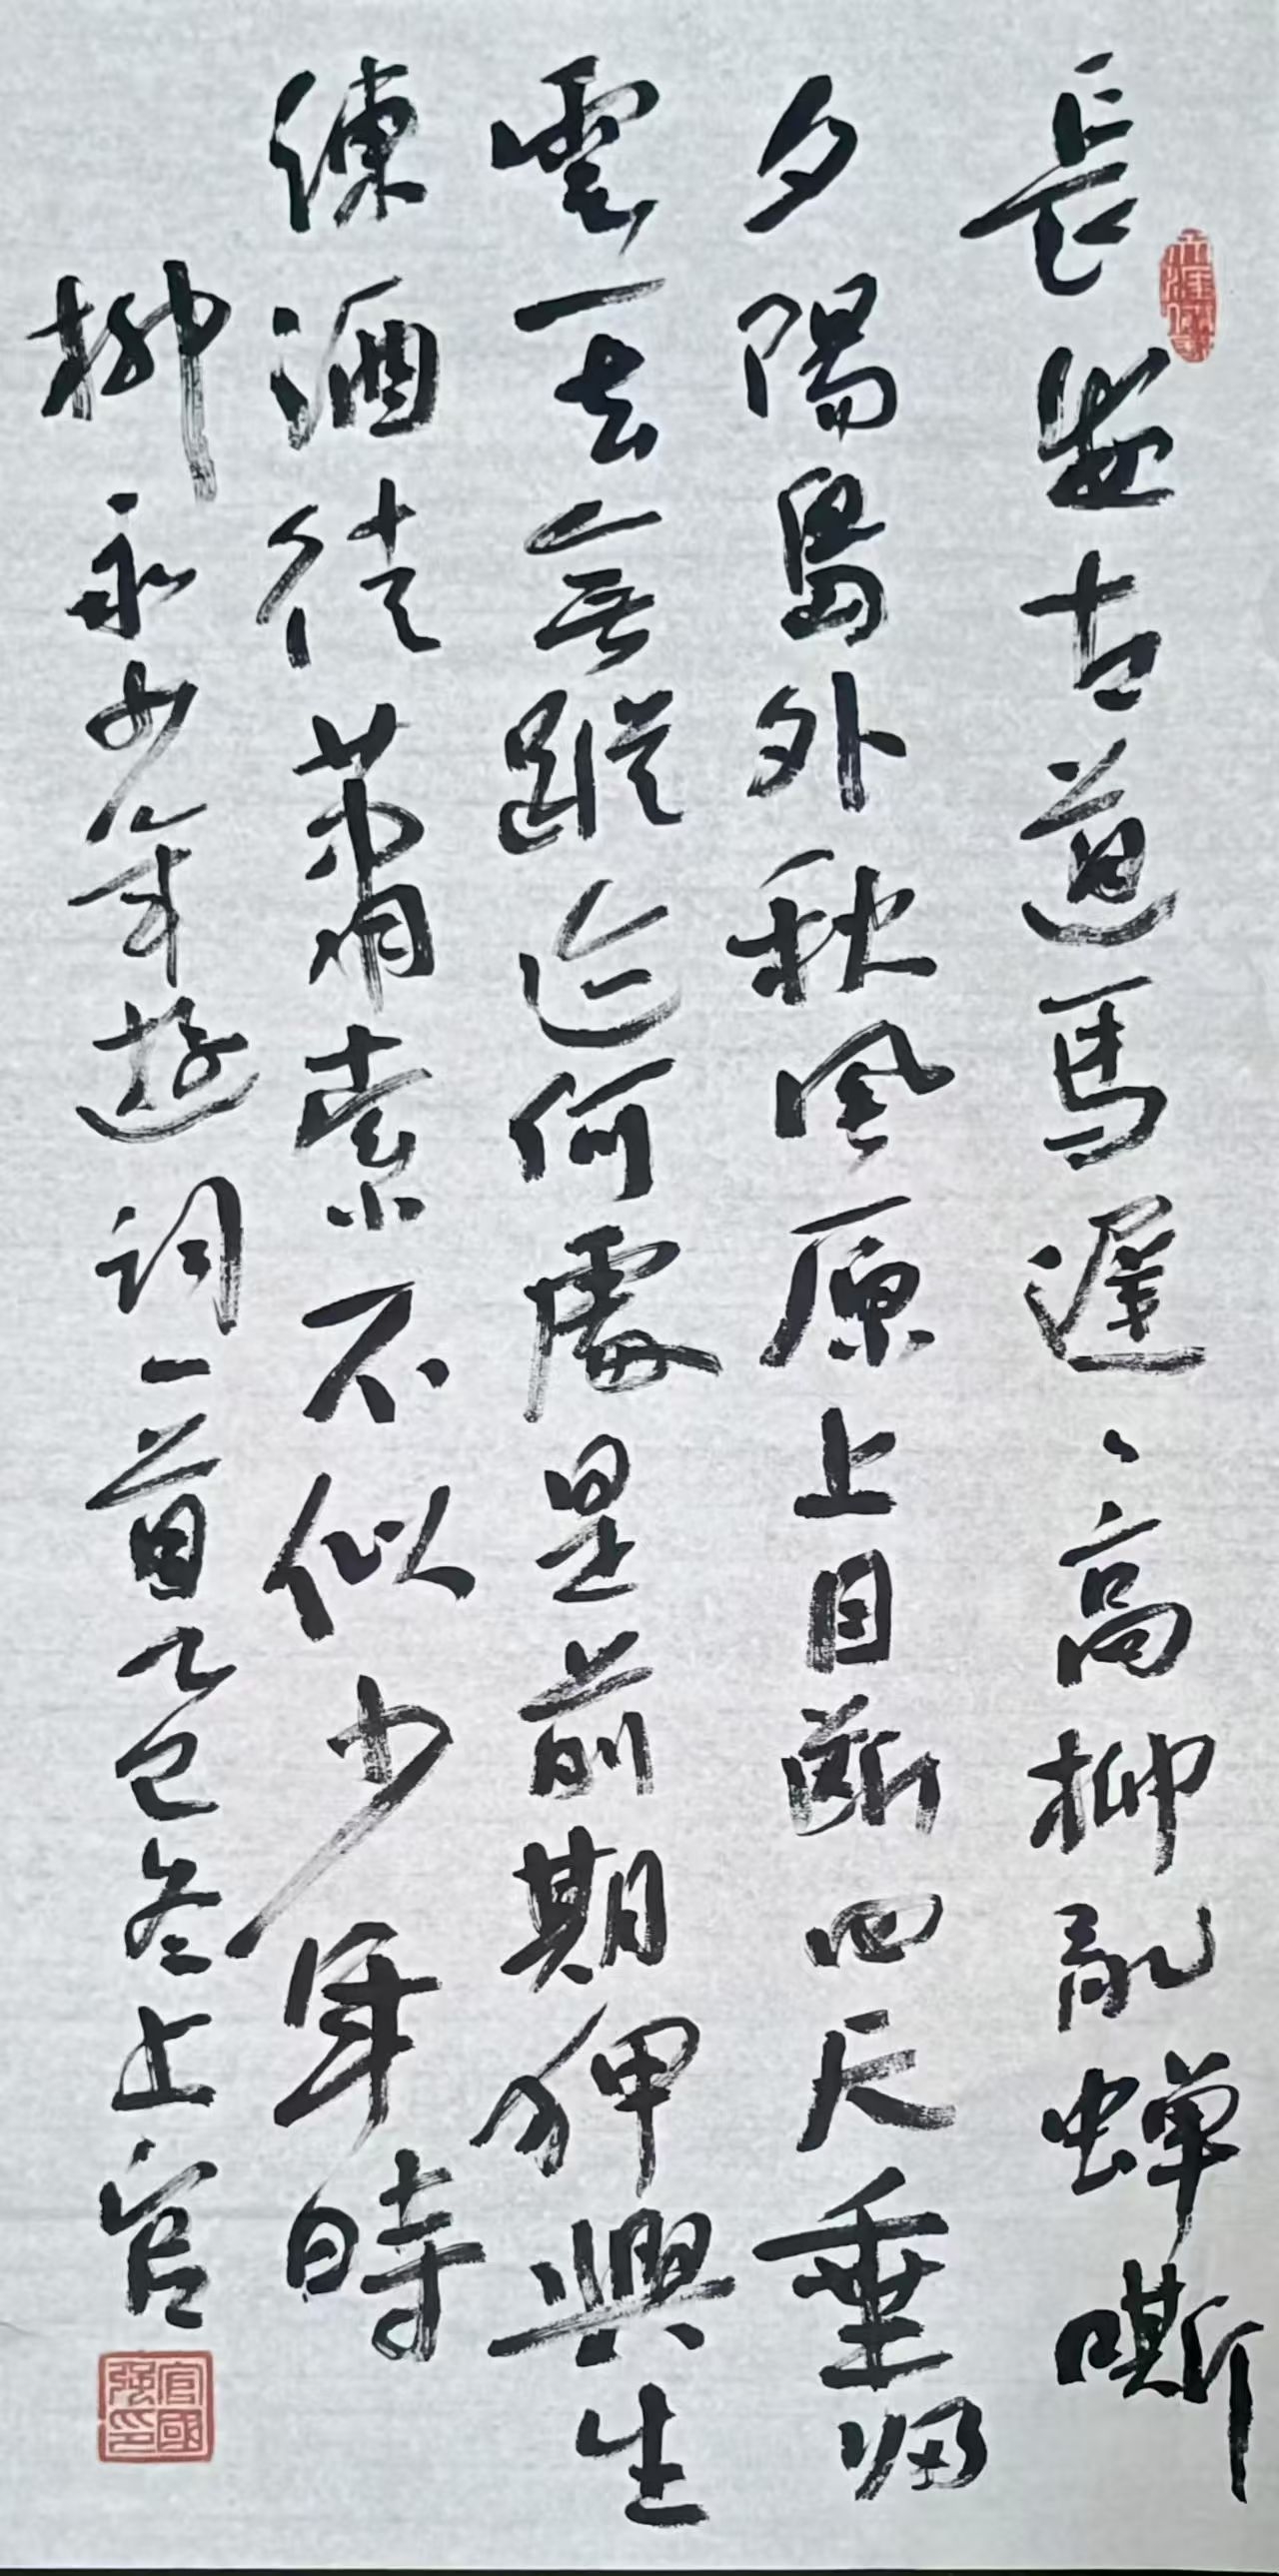 長安古道馬遲〻高柳亂蟬嘶
夕陽島外秋風原上目斷四天垂歸
雲一去無蹤迹何處是前期狎興生
疎酒徒蕭索不似少年時
柳永少年遊詞一首乙巳冬止官
官國強印